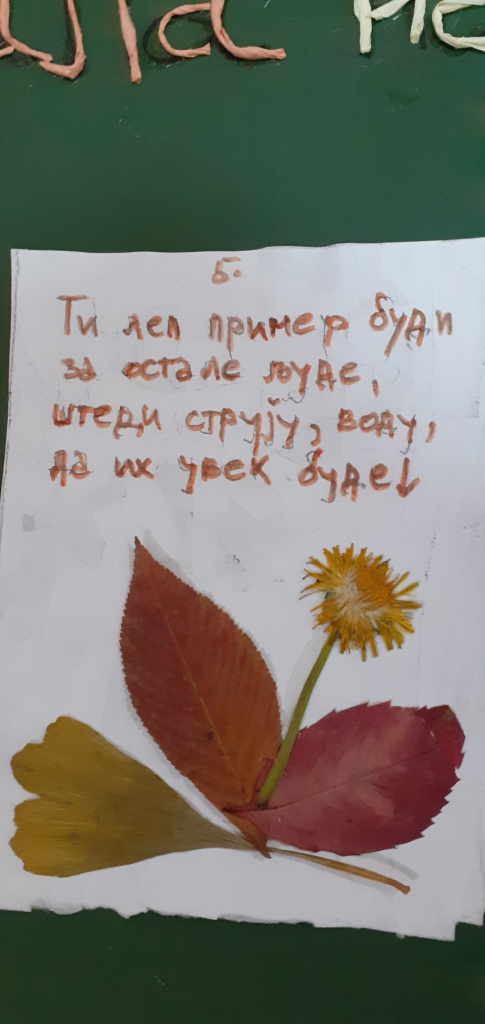 5.
Ти леп пример буди
за остале људе,
штеди струју, воду,
да их увек буде↓